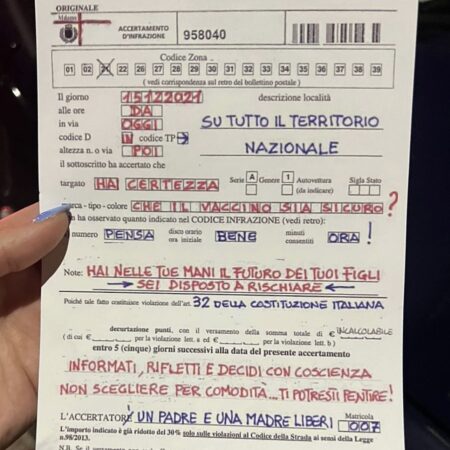 ORIGINALE
Milano
ACCERTAMENTO
D'INFRAZIONE
958040
Codice Zona
01 02 21 22 26 27 28 29 30 31 32 33 34 35 36 37 38 39
( vedi corrispondenza sul retro del bollettino postale )
Il giorno 15122021 descrizione località
alle ore DA
in via OGGI SU TUTTO IL TERRITORIO
codice D IN codice TP →
altezza n. o via POI NAZIONALE
il sottoscritto ha accertato che
targato HA CERTEZZA Serie A Genere 1 Autovettura (da indicare) Sigla Stato
marca - tipo - colore CHE IL VACCINO SIA SICURO?
ha osservato quanto indicato nel CODICE INFRAZIONE (vedi retro):
numero PENSA disco orario ora iniziale BENE minuti consentiti ORA!
Note: HAI NELLE TUE MANI IL FUTURO DEI TUOI FIGLI
→ SEI DISPOSTO A RISCHIARE ←
Poiché tale fatto costituisce violazione dell'art. 32 DELLA COSTITUZIONE ITALIANA
decurtazione punti, con il versamento della somma totale di € INCALCOLABILE
( di cui € per la violazione lett. a ed € per la violazione lett. b )
entro 5 (cinque) giorni successivi alla data del presente accertamento
INFORMATI, RIFLETTI E DECIDI CON COSCIENZA
NON SCEGLIERE PER COMODITÀ... TI POTRESTI PENTIRE!
L'ACCERTATORE UN PADRE E UNA MADRE LIBERI Matricola 007
L'importo indicato è già ridotto del 30% solo sulle violazioni al Codice della Strada ai sensi della Legge
n.98/2013.